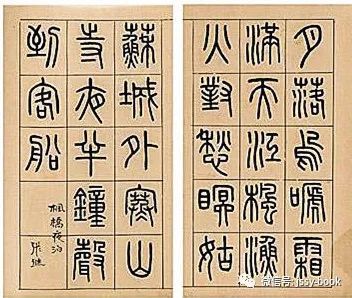 月落烏啼霜
滿天江楓漁
火對愁眠姑
蘇城外寒山
寺夜半鐘聲
到客船
楓橋夜泊
張继
微信号: jssy-book